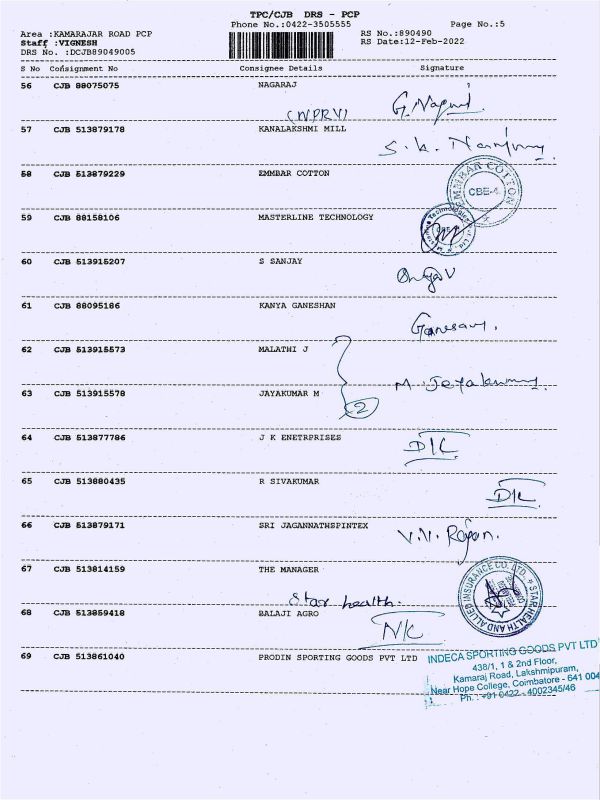 TPC/CJB DRS - PCP
Phone No.:0422-3505555 Page No.:5
Area :KAMARAJAR ROAD PCP RS No.:890490
Staff :VIGNESH RS Date:12-Feb-2022
DRS No. :DCJB89049005
S No Consignment No Consignee Details Signature
56 CJB 88075075 NAGARAJ
(NPRV)
57 CJB 513879178 KANALAKSHMI MILL
58 CJB 513879229 EMMBAR COTTON
EMMBAR COTTON
CBE-4
59 CJB 88158106 MASTERLINE TECHNOLOGY
60 CJB 513915207 S SANJAY
61 CJB 88095186 KANYA GANESHAN
Ganesan.
62 CJB 513915573 MALATHI J
M Jeyakumar
63 CJB 513915578 JAYAKUMAR M
2
64 CJB 513877786 J K ENETRPRISES
D/L
65 CJB 513880435 R SIVAKUMAR
D/L
66 CJB 513879171 SRI JAGANNATHSPINTEX
V.V. Rajan.
67 CJB 513814159 THE MANAGER
Star health.
STAR HEALTH AND ALLIED INSURANCE CO. LTD.
68 CJB 513859418 BALAJI AGRO
N/C
69 CJB 513861040 PRODIN SPORTING GOODS PVT LTD
INDECA SPORTING GOODS PVT LTD
438/1, 1 & 2nd Floor,
Kamaraj Road, Lakshmipuram,
Near Hope College, Coimbatore - 641 004
Ph. : +91 0422 - 4002345/46